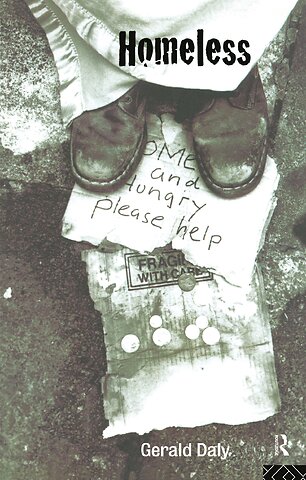 Homeless
OME
and
Hungry
please help
FRAGI
WITH CAR
Gerald Daly
R